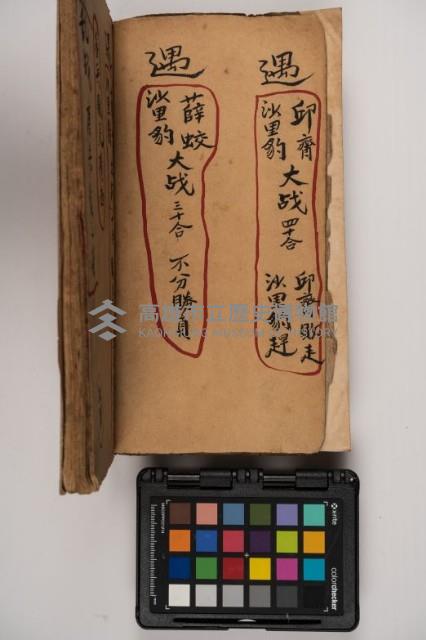 遇
邱齊
沙里豹
大战
四十合
邱齊敗走
沙里豹趕
遇
薛蛟
沙里豹
大战
三十合
不分勝負
高雄市立歷史博物館
KAOHSIUNG MUSEUM OF HISTORY
x-rite
colorchecker